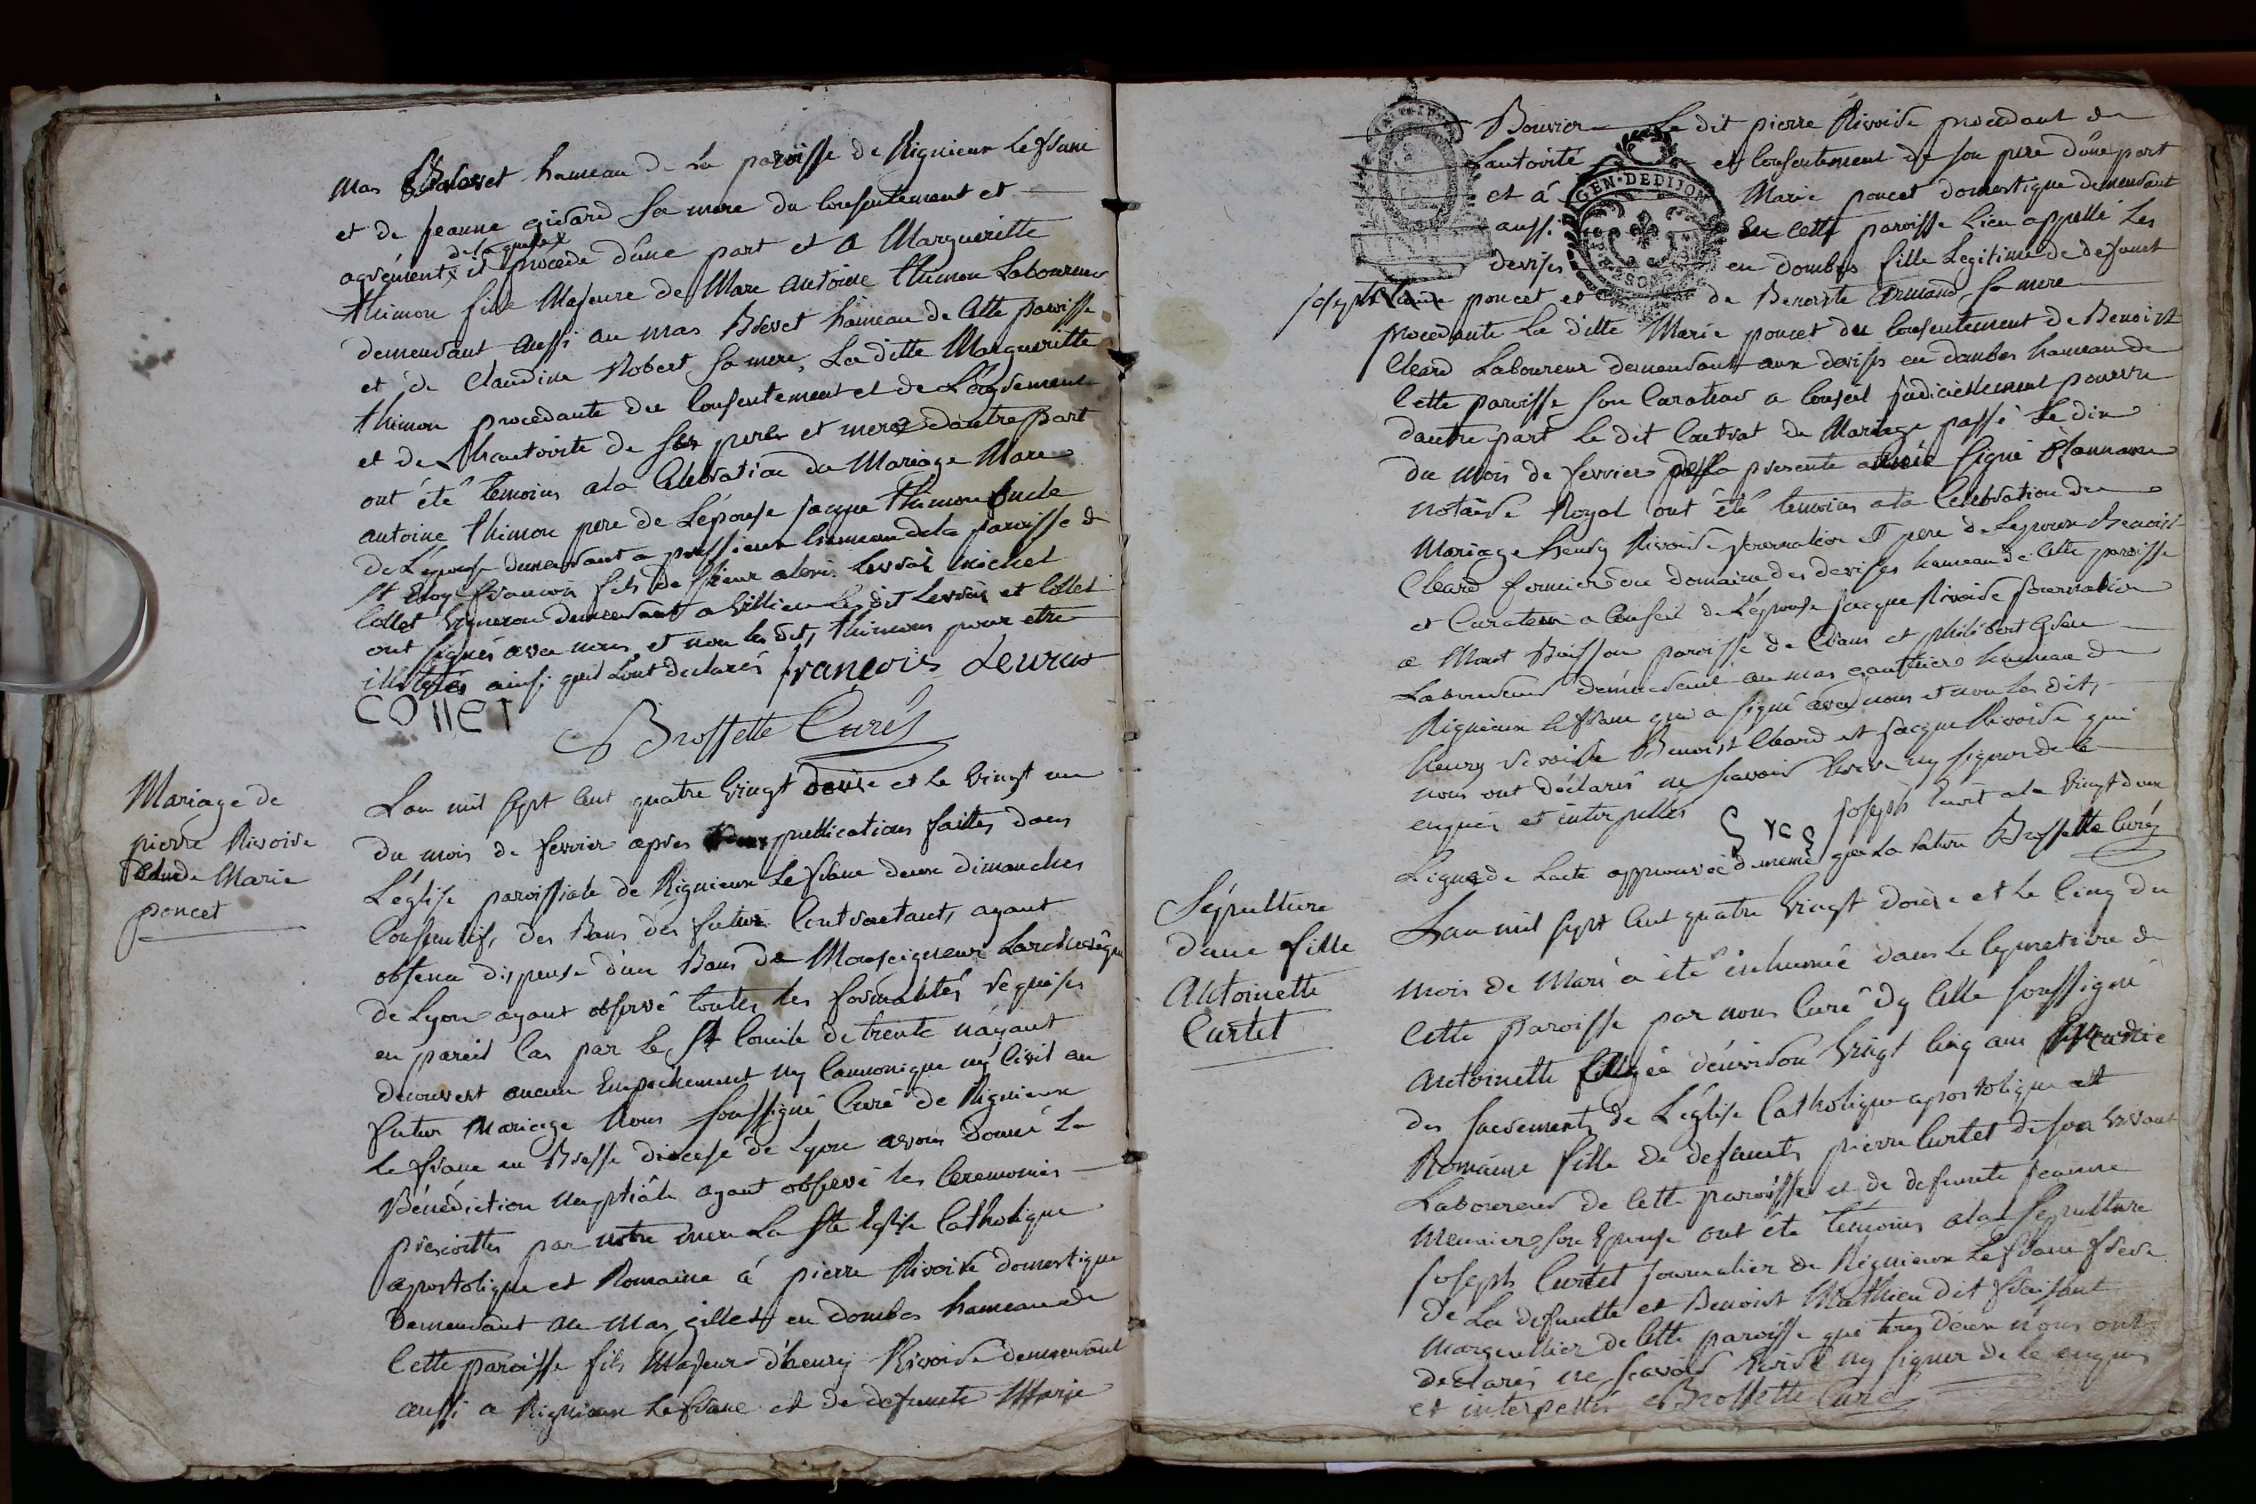 mas Brevet hameau de la paroisse de Rignieux le franc
et de jeanne gicard sa mere du consentement et
de laquelle
agrément x il procede d'une part et a Margueritte
thimon fille Majeure de Marc antoine thimon Laboureur
demeurant aussi au mas Brevet hameau de cette paroisse
et de Claudine Robert sa mere, La ditte Margueritte
thimon procedante du Consentement et de L'agrement
et de Lhautorité de ses pere et mere d'autre part
ont été témoins a la Celebration du Mariage Marc
antoine thimon pere de L'épouse jacque thimon oncle
de L'épouse demeurant a hameau de la paroisse de
St Eloy françois fils de sieur alexis Levrat michel
Collet vigneron demeurant a Villieu les dit Levrat et Collet
ont signés avec nous et non les dits thimons pour etre
illiterés ainsi qu'il sont declarés françois Levrat
COllET
Brossette Curé
Mariage de
pierre Rivoire
et de Marie
poncet
Lan mil sept cent quatre vingt douse et le vingt un
du mois de fevrier apres deux publications faittes dans
L'église paroissiale de Rignieux Le franc deux dimanches
Consecutifs, des Bans des futurs Contractants, ayant
obtenu dispense d'un Bans de Monseigneur Larcheveque
de Lyon ayant observé toutes les formalités requises
en pareil Cas par le St Concile de trente n'ayant
decouvert aucun Empechement ny Cannonique ny Civil au
futur Mariage Nous soussigné Curé de Rignieux
le franc en Bresse diocese de Lyon avons donné La
Bénédiction nuptiâle ayant observé les Ceremonies
prescrittes par notre mere La Ste Eglise Catholique
apostolique et Romaine a pierre Rivoire domestique
demeurant au Mas gillet en dombes hameau de
Cette paroisse fils Majeur d'henry Rivoire demeurant
aussi a Rignieux Le franc et de defunte Marie
Bouvier Le dit pierre Rivoire procedant de
Lautorité et Consentement de son pere d'une part
et á Marie poncet domestique demeurant
GEN·DEDIJON
aussi En cette paroisse lieu appellé Les
devises en dombes fille Legitime de defunt
joseph poncet et de Benoiste armand sa mere
procedante La ditte Marie poncet du Consentement de Benoist
Cleard Laboureur demeurant aux devises en dombes hameau de
Cette paroisse son Curateur a Conseil judiciellement pourvu
dautre part le dit Contrat de Mariage passé Le dix
du mois de fevrier de la presente année signé
notaire Royal ont été temoins a la Celebration du
Mariage henry Rivoire journalier pere de Lepoux Benoist
Cleard fermier du domaine des devises hameau de Cette paroisse
et Curateur a Conseil de L'épouse jacque Rivoire journalier
a Mont Buisson paroisse de Crans et philibert
Laboureur demeurant au mas gauthier hameau de
Rignieux le franc qui a signé avec nous et non les dits
henry rivoire Benoist Cleard et jacque Rivoire qui
nous ont déclarés ne scavoir Ecrire ny signer de ce
enquis et interpellés joseph Ecrit a la Vingt deux
Ligne de Lacte approuvée de meme que La rature Brossette Curé
Sépulture
d'une fille
Antoinette
Curtet
Lan mil sept cent quatre Vingt douse et Le Cinq du
mois de Mars a été inhumée dans Le Cymetiere de
Cette Paroisse par nous Curé d'y Celle soussigné
Antoinette agée d'environ Vingt Cinq ans Munie
des sacrements de L'église Catholique apostolique et
Romaine fille de defunts pierre Curtet de son vivant
Laboureur de Cette paroisse et de defunte jeanne
Meunier son Epouse ont été temoins a la sepulture
joseph Curtet journalier de Rignieux Le franc frere
de La defuntte et Benoist Mathieu dit
Marguillier de Cette paroisse que tous deux nous ont
declarés ne scavoir Ecrire ny signer de ce enquis
et interpellés Brossette Curé